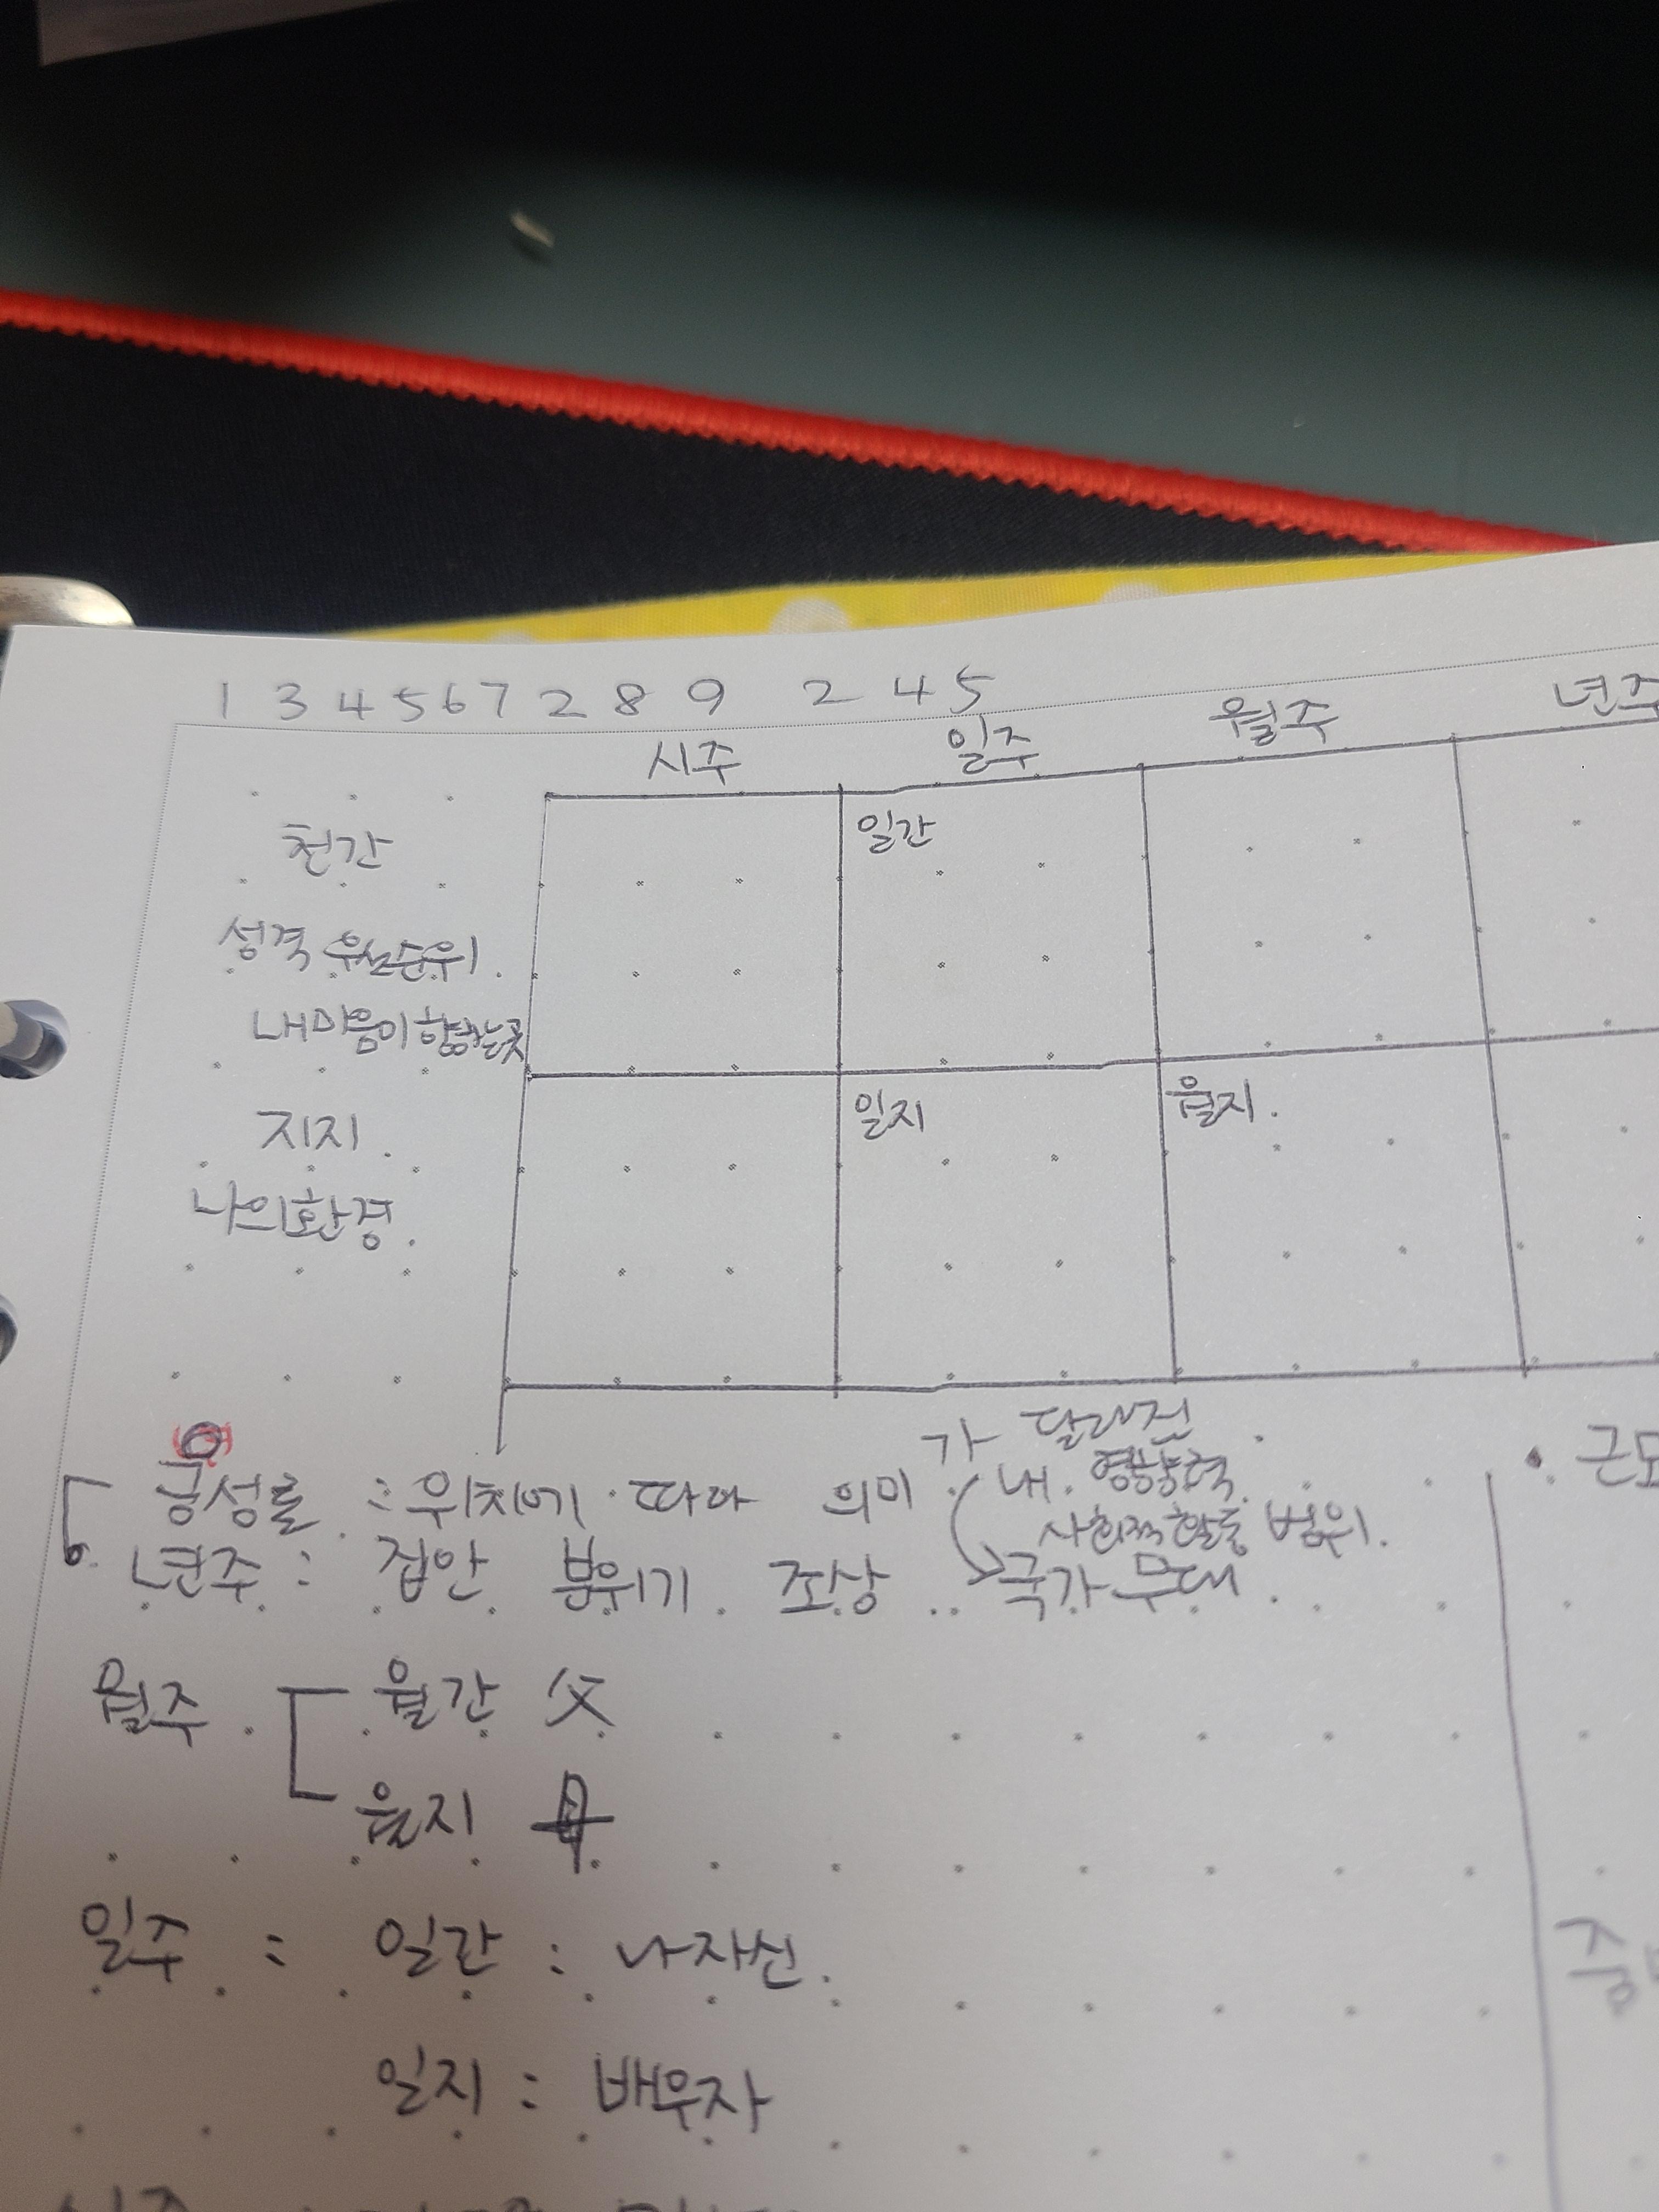 1 3 4 5 6 7 2 8 9 2 4 5
시주 일주 월주 년주
천간 일간
성격 우선순위.
내마음이 향하는곳
지지. 일지 월지.
나의환경.
가 달라진
궁성론 : 위치에 따라 의미 내 영향력
사회적 활동 범위.
년주 : 집안 분위기 조상 국가 무대
월주 월간 父
월지 母
일주 : 일간 : 나자신.
일지 : 배우자